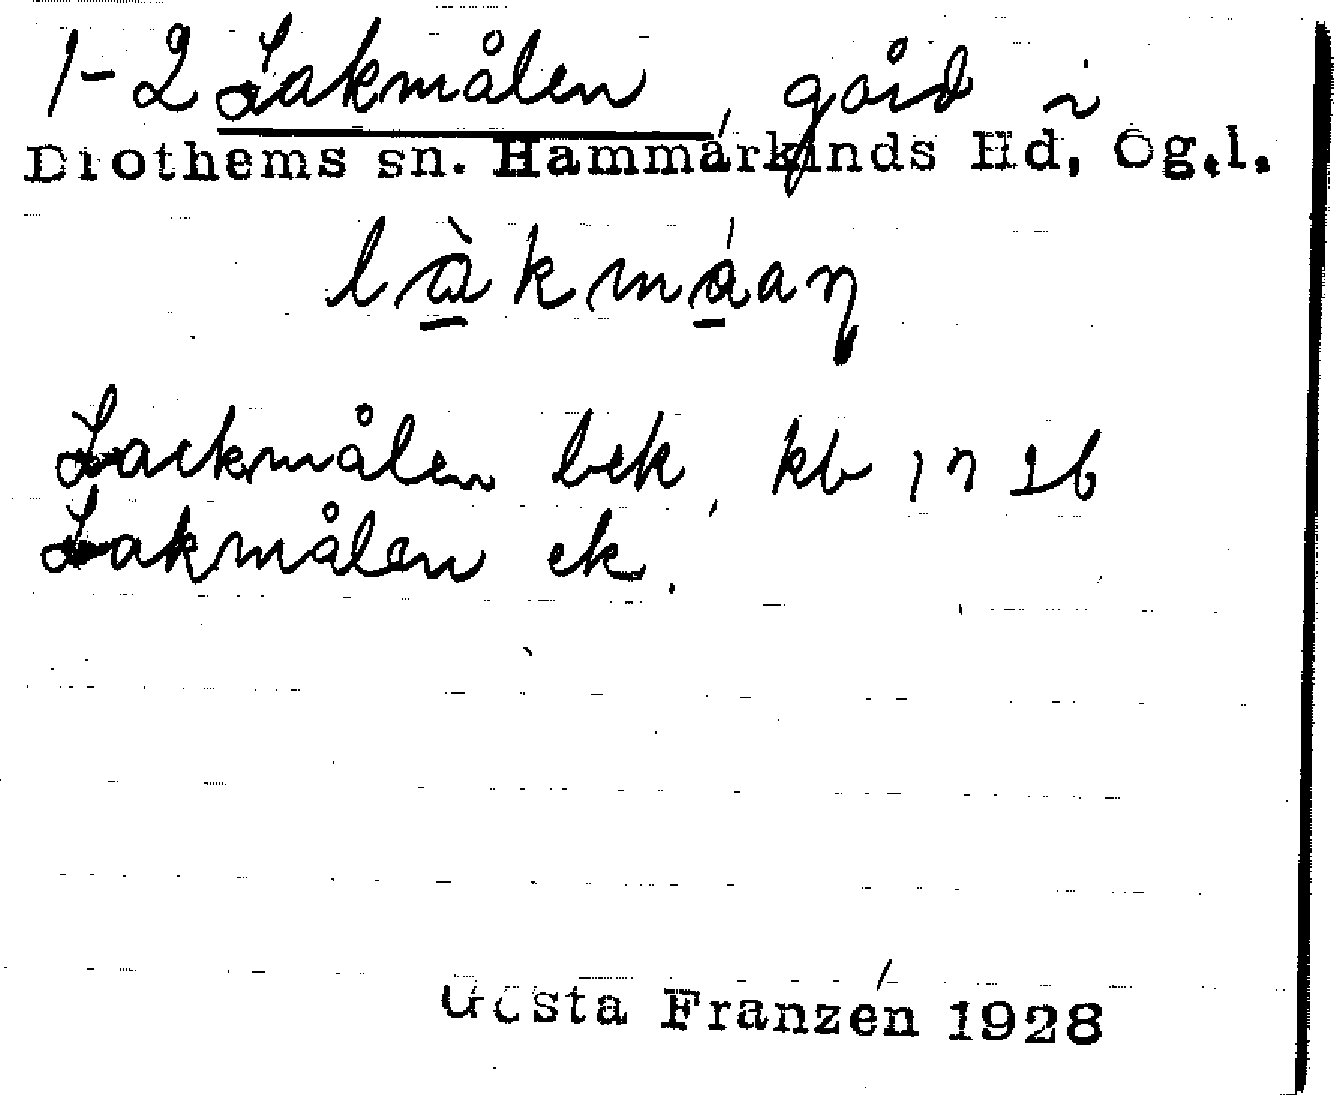 1-2 Lakmålen, gård i
Drothems sn. Hammarkinds Hd, Ög.l.
làkmáaŋ
Lackmålen bek, kb 1726
Lakmålen ek.
Gösta Franzén 1928